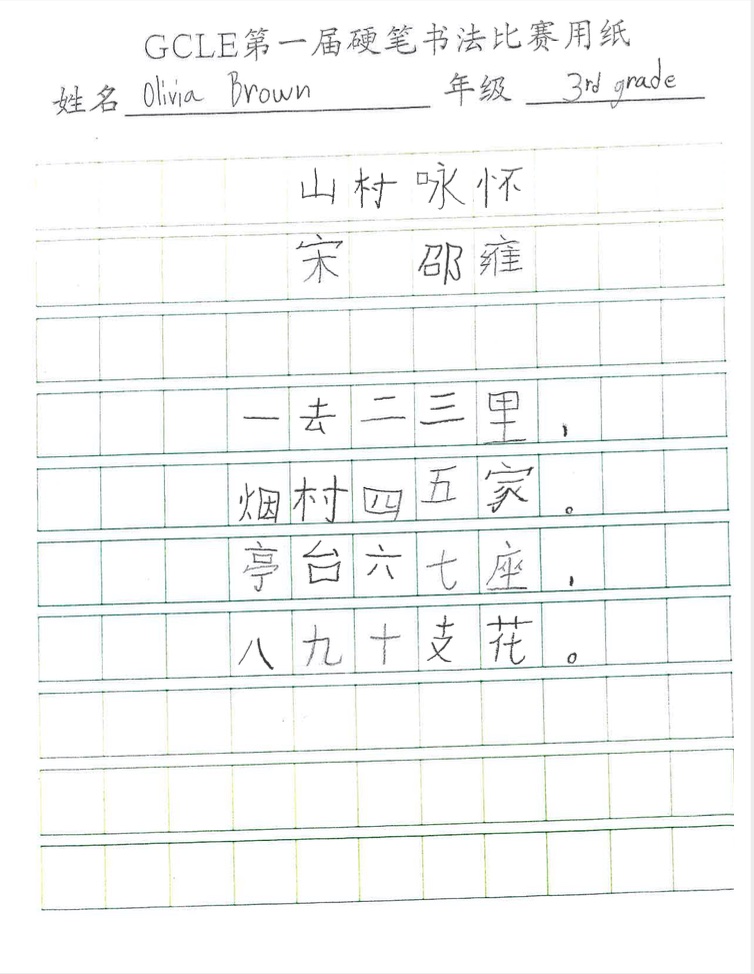 GCLE第一届硬笔书法比赛用纸
姓名 Olivia Brown 年级 3rd grade
山村咏怀
宋 邵雍
一去二三里，
烟村四五家。
亭台六七座，
八九十支花。